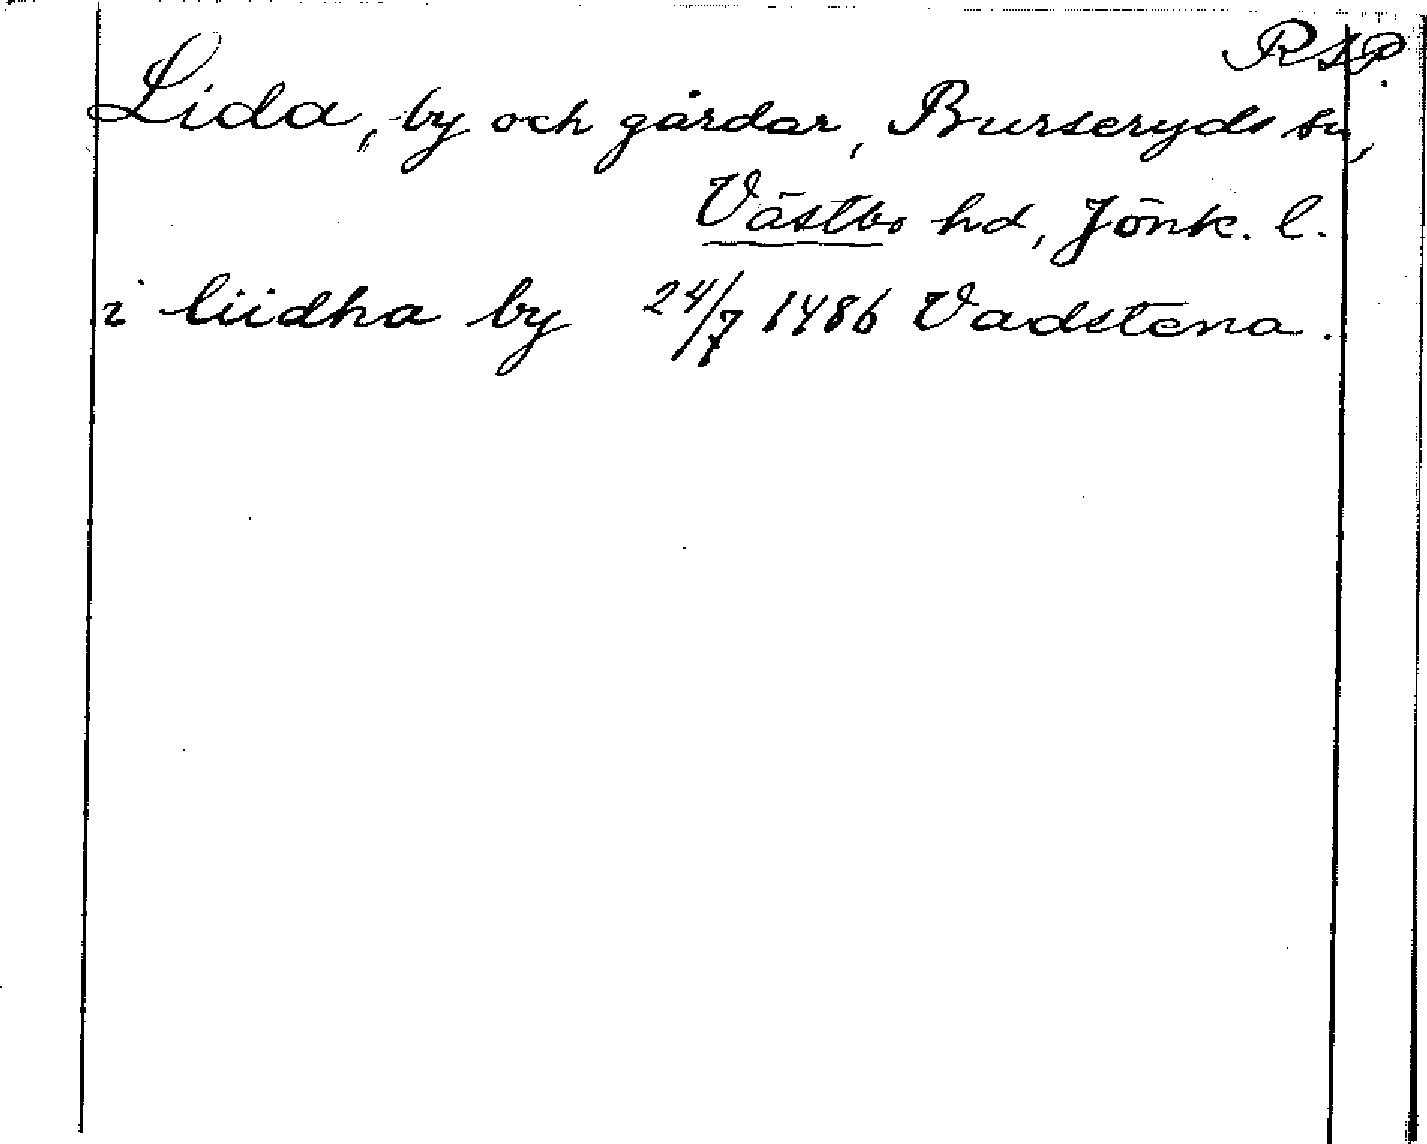 RSP.
Lida, by och gårdar, Burseryds sn,
Västbo hd, Jönk. l.
i liidha by 24/7 1486 Vadstena.